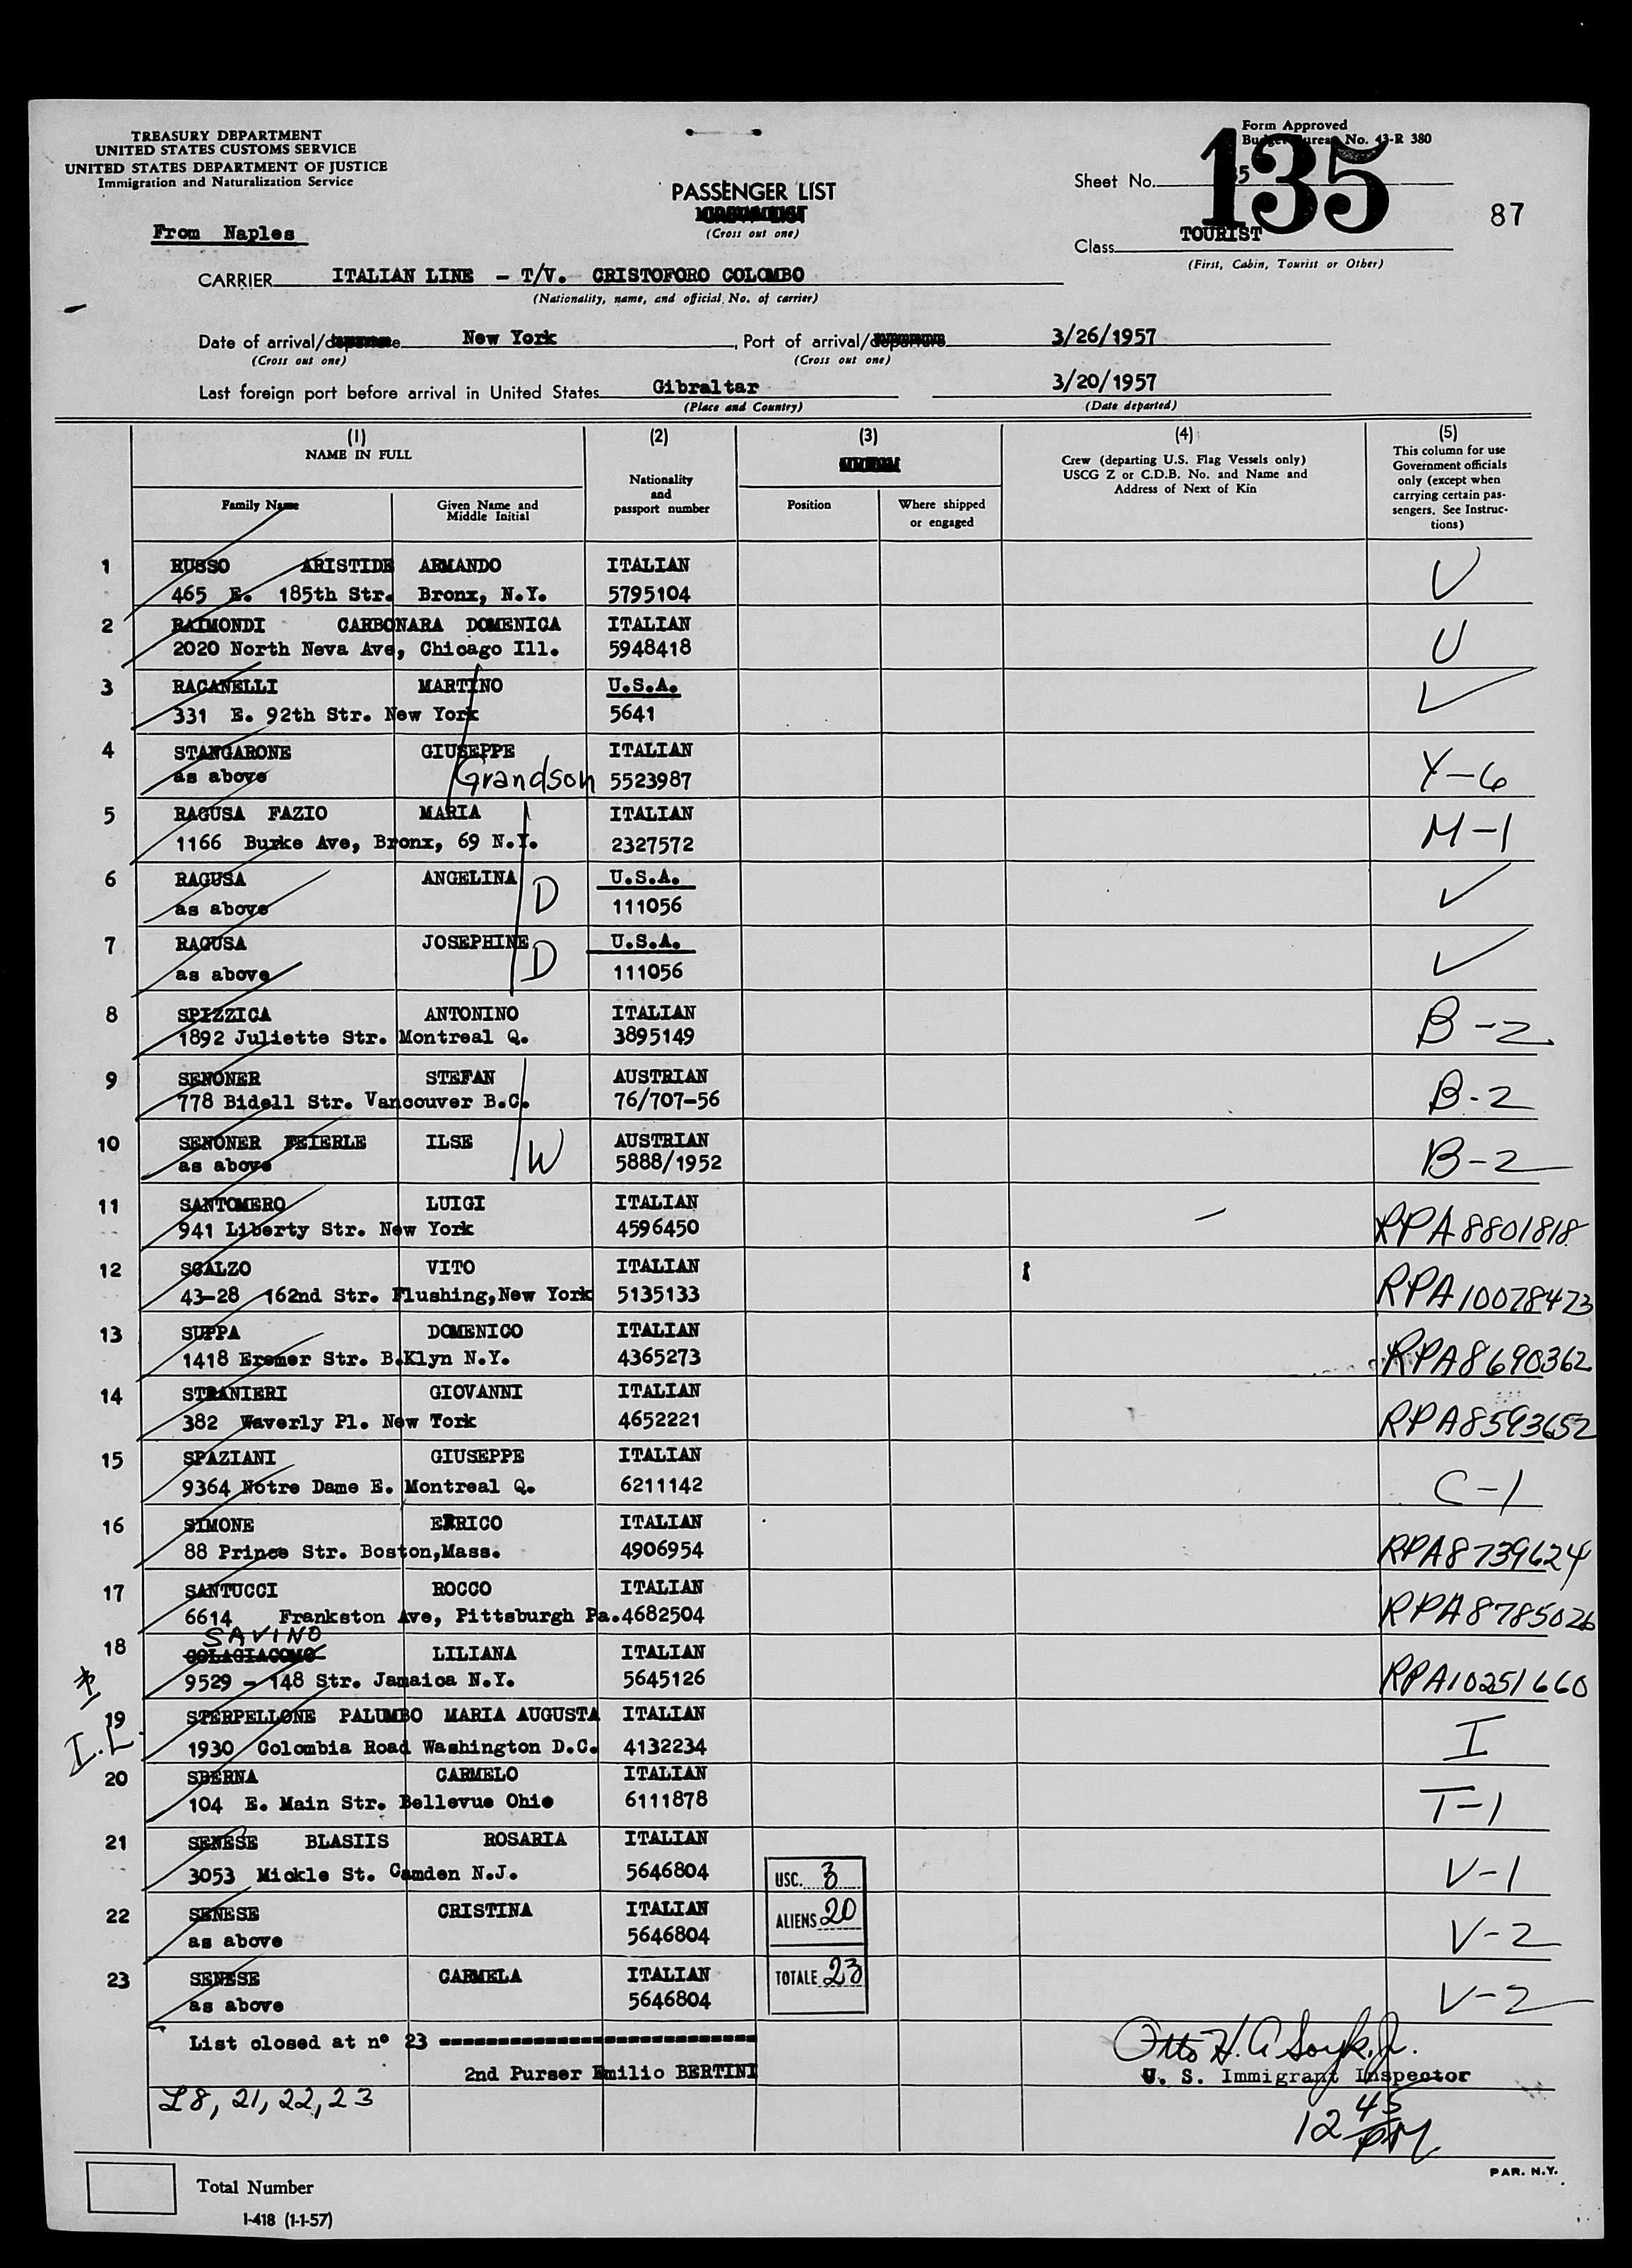 TREASURY DEPARTMENT
UNITED STATES CUSTOMS SERVICE
UNITED STATES DEPARTMENT OF JUSTICE
Immigration and Naturalization Service
Form Approved
No. 43-R 380
PASSENGER LIST
(Cross out one)
Sheet No. 135
87
From Naples
Class TOURIST
(First, Cabin, Tourist or Other)
CARRIER ITALIAN LINE - T/V. CRISTOFORO COLOMBO
(Nationality, name, and official No. of carrier)
Date of arrival/departure New York, Port of arrival/departure 3/26/1957
(Cross out one) (Cross out one)
Last foreign port before arrival in United States Gibraltar 3/20/1957
(Place and Country) (Date departed)
(1) (2) (3) (4) (5)
NAME IN FULL
Family Name
Given Name and Middle Initial
Nationality and passport number
Position
Where shipped or engaged
Crew (departing U.S. Flag Vessels only)
USCG Z or C.D.B. No. and Name and
Address of Next of Kin
This column for use
Government officials
only (except when
carrying certain pas-
sengers. See Instruc-
tions)
1 RUSSO ARISTIDE ARMANDO ITALIAN
465 E. 185th Str. Bronx, N.Y. 5795104
2 RAIMONDI CARBONARA DOMENICA ITALIAN U
2020 North Neva Ave, Chicago Ill. 5948418
3 RAGANELLI MARTINO U.S.A.
331 E. 92th Str. New York 5641
4 STANGARONE GIUSEPPE ITALIAN Y-6
as above Grandson 5523987
5 RAGUSA FAZIO MARIA ITALIAN M-1
1166 Burke Ave, Bronx, 69 N.Y. 2327572
6 RAGUSA ANGELINA D U.S.A.
as above 111056
7 RAGUSA JOSEPHINE D U.S.A.
as above 111056
8 SPIZZICA ANTONINO ITALIAN B-2
1892 Juliette Str. Montreal Q. 3895149
9 SENONER STEFAN AUSTRIAN B-2
778 Bidell Str. Vancouver B.C. 76/707-56
10 SENONER FEIERLE ILSE W AUSTRIAN B-2
as above 5888/1952
11 SANTOMERO LUIGI ITALIAN
941 Liberty Str. New York 4596450 RPA 8801818
12 SCALZO VITO ITALIAN
43-28 162nd Str. Flushing,New York 5135133 RPA 10078473
13 SUPPA DOMENICO ITALIAN
1418 Eremer Str. B.Klyn N.Y. 4365273 RPA8690362
14 STRANIERI GIOVANNI ITALIAN
382 Waverly Pl. New York 4652221 RPA8593652
15 SPAZIANI GIUSEPPE ITALIAN
9364 Notre Dame E. Montreal Q. 6211142 C-1
16 SIMONE ERRICO ITALIAN
88 Prince Str. Boston,Mass. 4906954 RPA8739624
17 SANTUCCI ROCCO ITALIAN
6614 Frankston Ave, Pittsburgh Pa. 4682504 RPA8785026
SAVINO
18 COLAGIACOMO LILIANA ITALIAN
9529 - 148 Str. Jamaica N.Y. 5645126 RPA10251660
19 STERPELLONE PALUMBO MARIA AUGUSTA ITALIAN I
I.L. 1930 Colombia Road Washington D.C. 4132234
20 SBERNA CARMELO ITALIAN T-1
104 E. Main Str. Bellevue Ohio 6111878
21 SENESE BLASIIS ROSARIA ITALIAN
3053 Mickle St. Camden N.J. 5646804 V-1
USC. 3
22 SENESE CRISTINA ITALIAN
ALIENS 20
as above 5646804 V-2
23 SENESE CARMELA ITALIAN
TOTALE 23
as above 5646804 V-2
List closed at n° 23
2nd Purser Emilio BERTINI
U. S. Immigrant Inspector
L8, 21, 22, 23
12 45 PM
PAR. N.Y.
Total Number
I-418 (1-1-57)